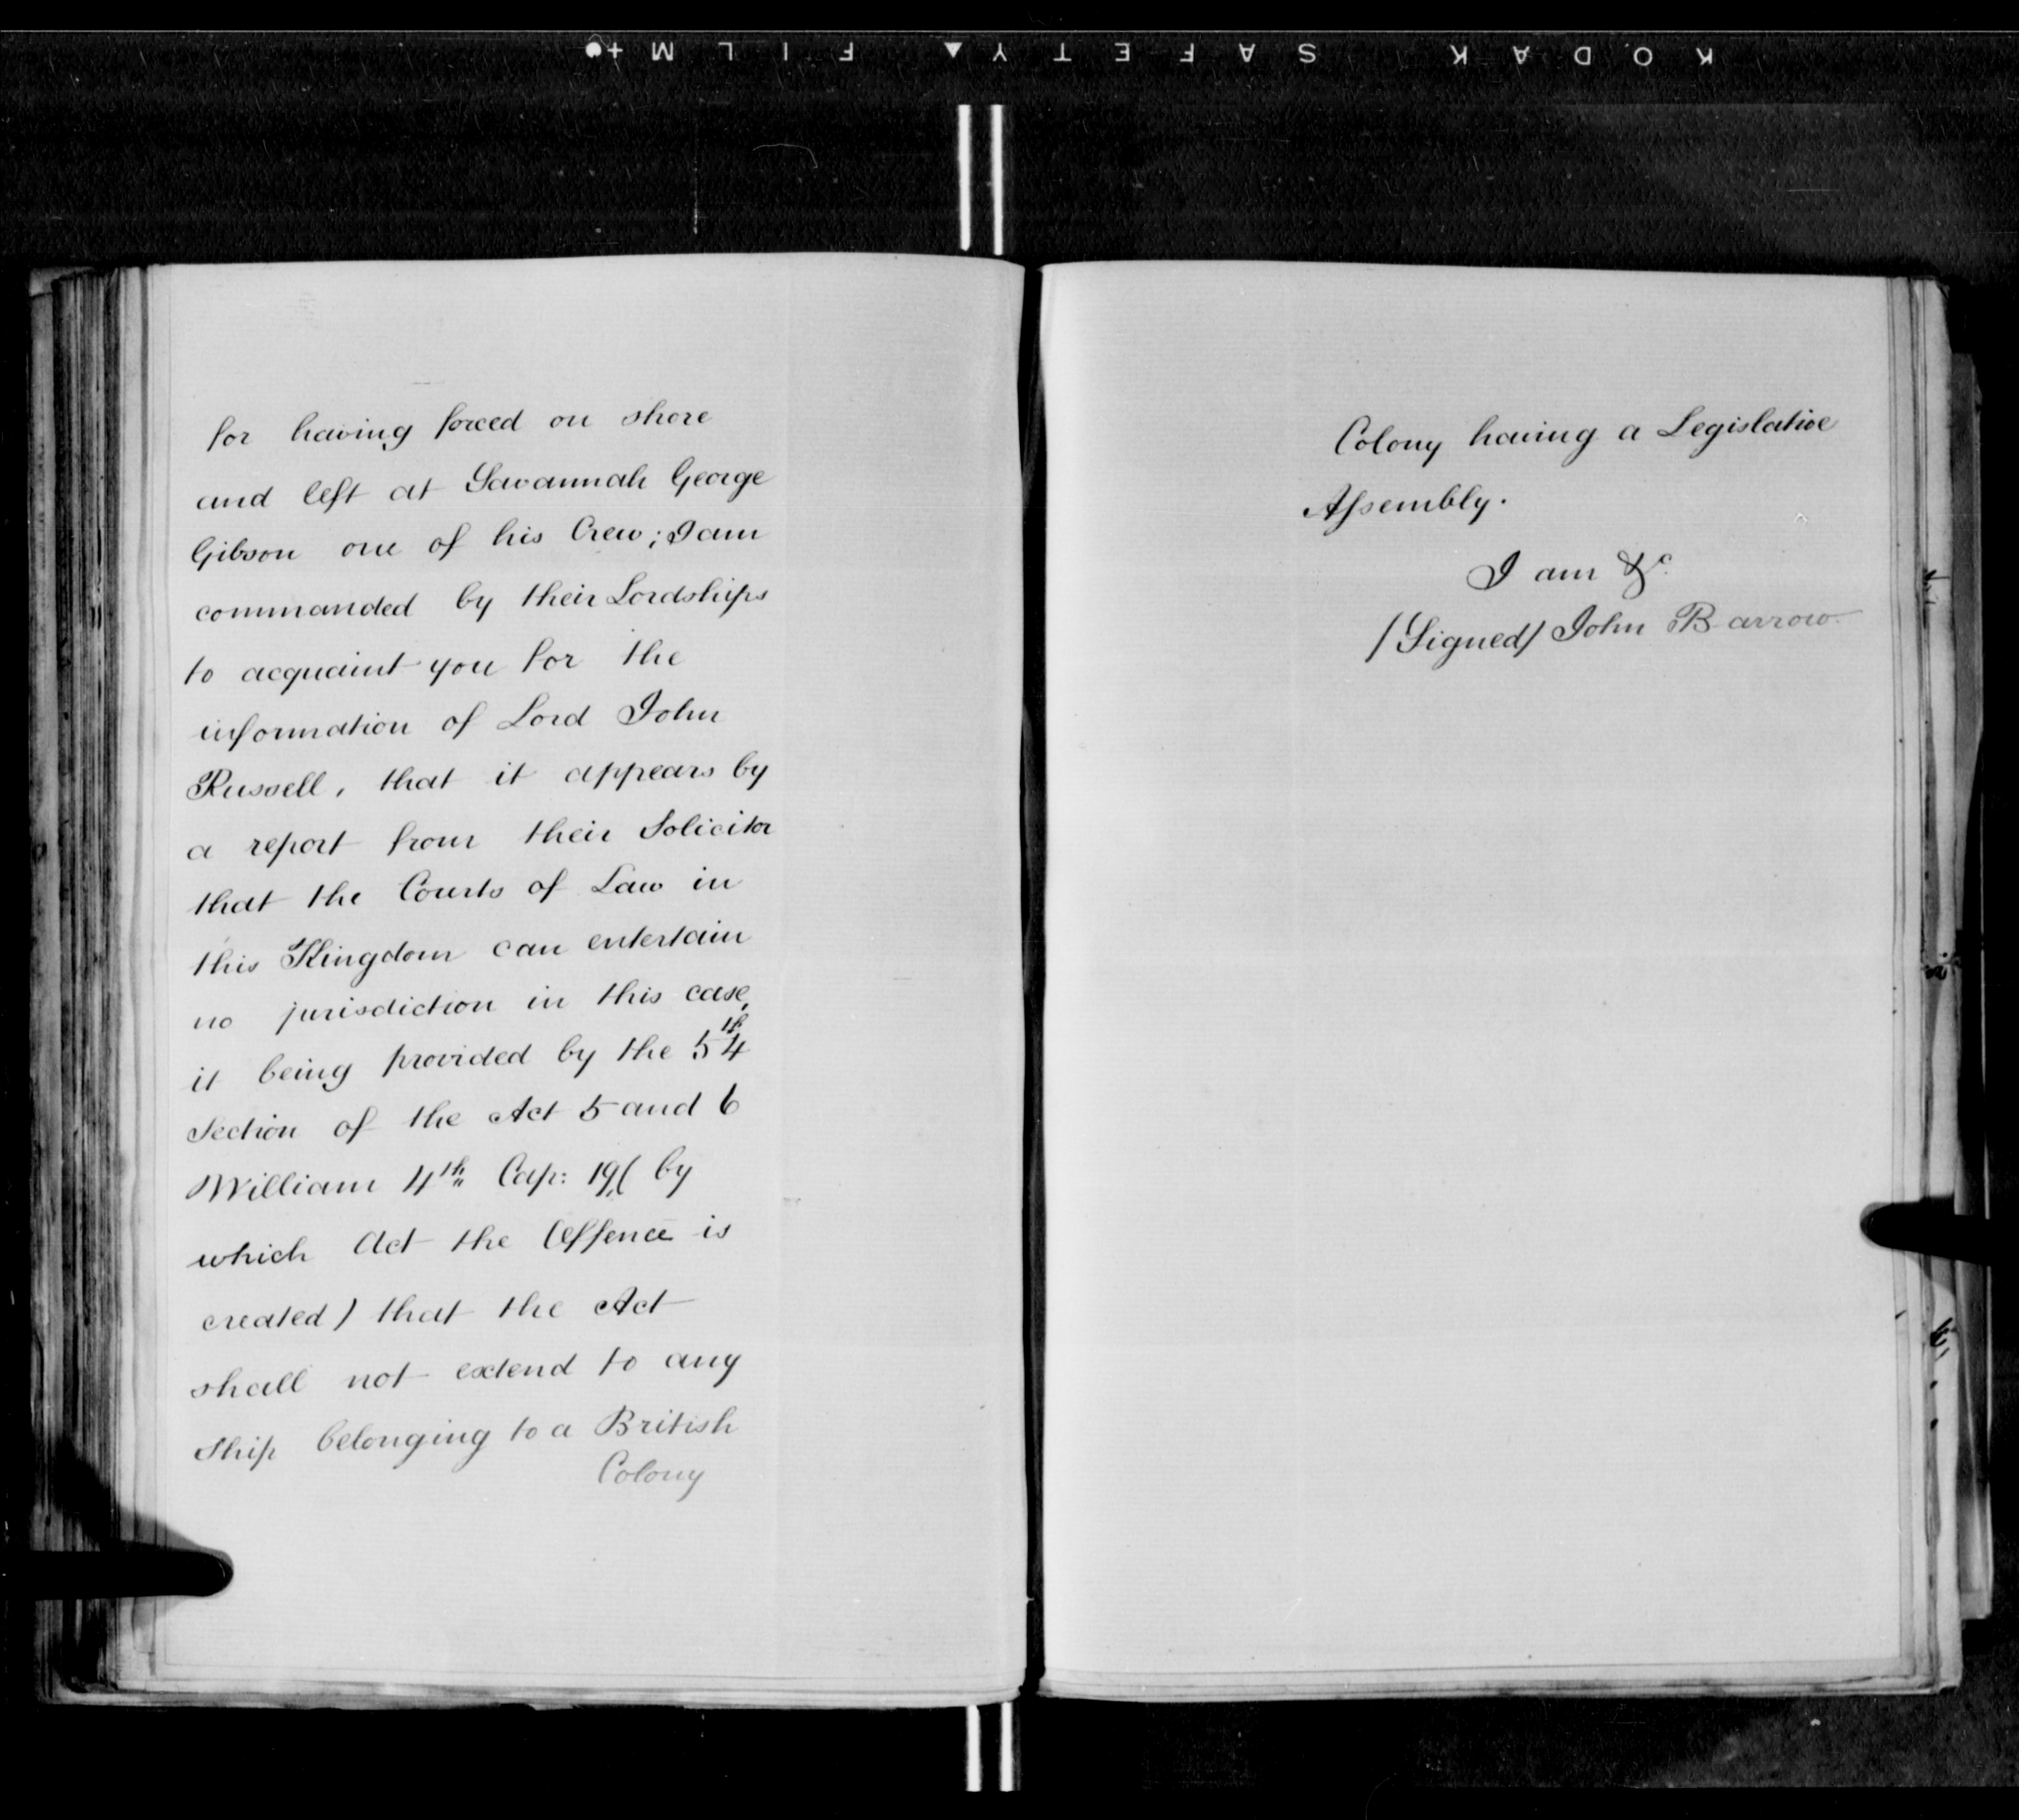 KODAK SAFETY▲ FILM+●
for having forced on shore
and left at Savannah George
Gibson one of his Crew; I am
commanded by their Lordships
to acquaint you for the
information of Lord John
Russell, that it appears by
a report from their Solicitor
that the Courts of Law in
this Kingdom can entertain
no jurisdiction in this case,
it being provided by the 54th
Section of the Act 5 and 6
William 4th Cap: 19, (by
which Act the Offence is
created) that the Act
shall not extend to any
Ship belonging to a British
Colony
Colony having a Legislative
Assembly.
I am &c.
/Signed/ John Barrow.